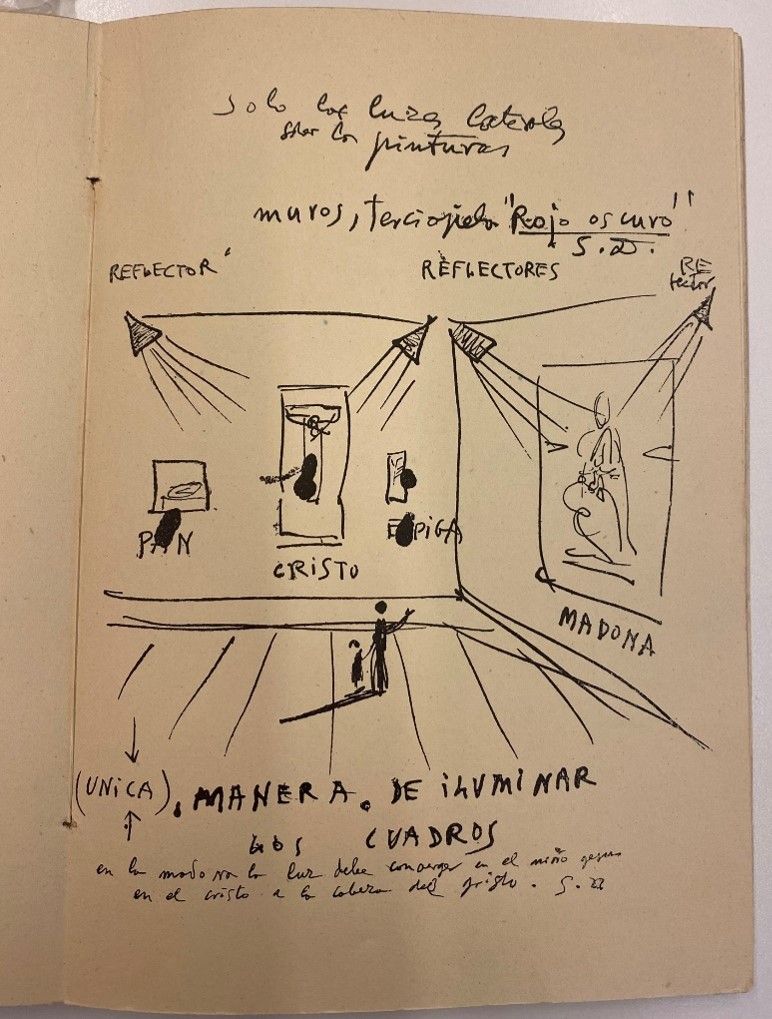 solo las luces laterales
sobre las pinturas
muros, terciopelo "Rojo oscuro"
S.D.
REFLECTOR
REFLECTORES
RE
flector
PAN
CRISTO
ESPIGA
MADONA
(UNICA), MANERA. DE ILUMINAR
LOS CUADROS
en la madona la luz debe converger en el niño gesus
en el cristo a la cabeza del cristo. S.D